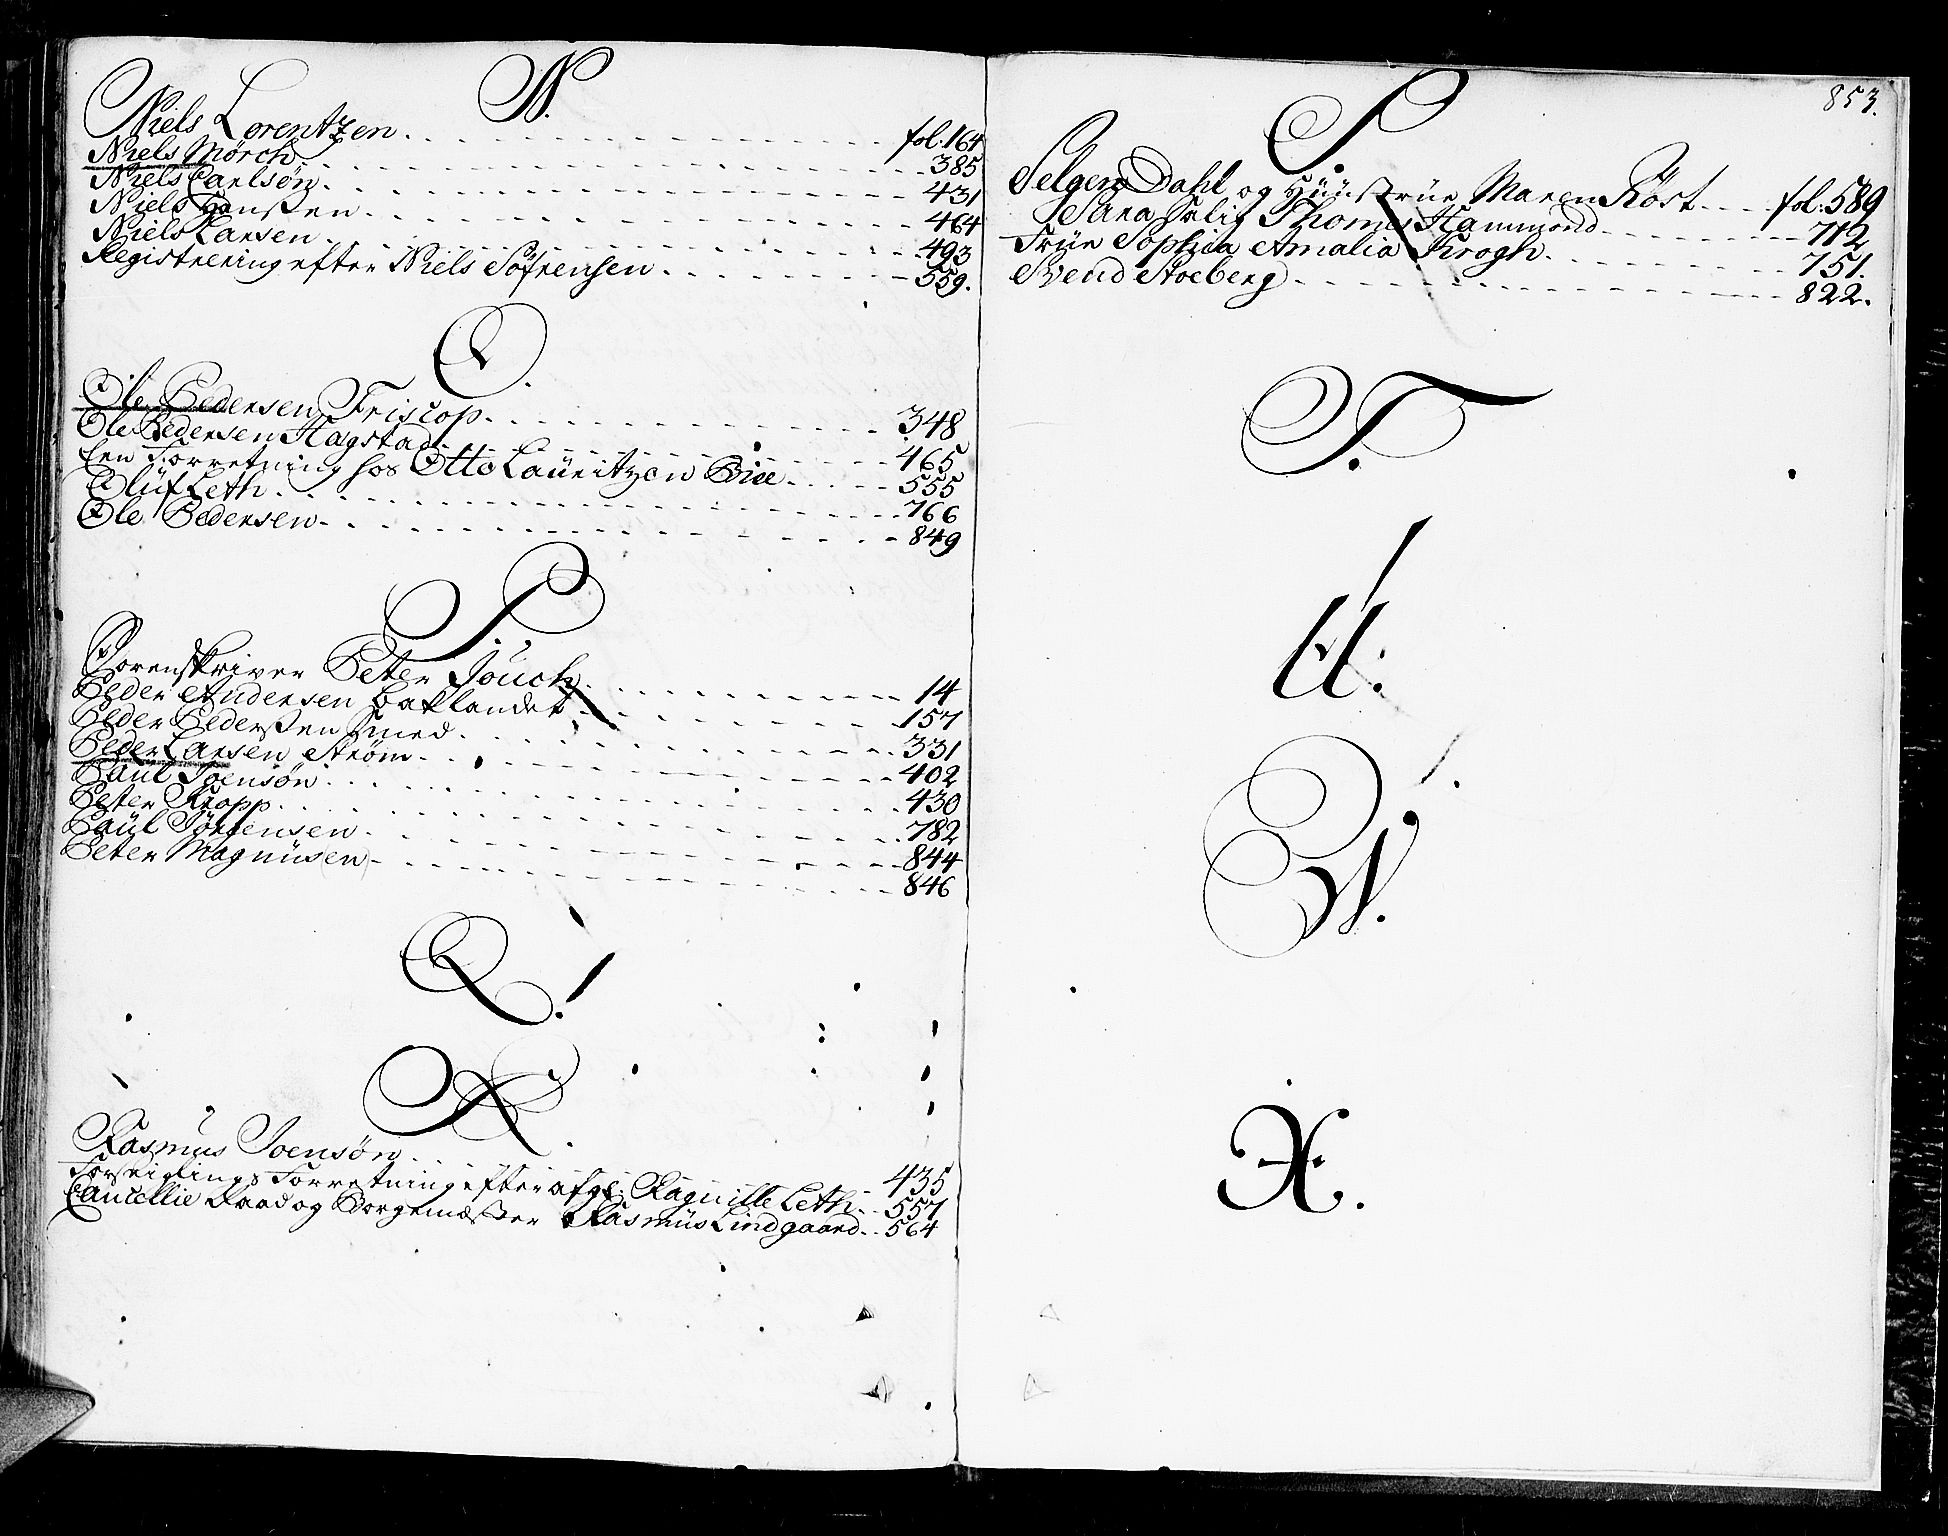 N.
Niels Lorentzen. fol. 164
Niels Mörch 385
Niels Carlsøn. 431
Niels Hanssen. 464
Niels Larsen. 493
Registrering efter Niels Söfrensen. 559.
O.
Ole Pedersen Friscop. 348
Ole Pedersen Hagstad. 465
Een Forretning hos Otto Lauritzen Bie. 555
Oluf Leth. 766
Ole Pedersen. 849
P.
Torenskriver Peter Jouch. 14
Peder Andersen Baklandet. 157
Peder Pederssen Smed. 331
Peder Larsen Strøm. 402
Paul Joensøn. 430
Peter Kropp. 782
Paul Jörgensen. 844
Peter Magnusen 846
Q.
R.
Rasmus Joensøn. 435
Forseiglings Forretning efter afg: Ragnille Leth. 557
Cancellie Raad og Borgemæster Rasmus Lindgaard. 564
853.
S.
Selgen Dahl og Huustrue Maren Röst. fol: 589
Sara Salig Thomes Hammond 712
Frue Sophia Amalia Krogh. 751.
Svend Stoeberg. 822.
T.
U.
W.
X.